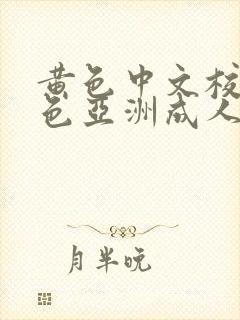 黃色中文校
色亞洲成人
月半晚